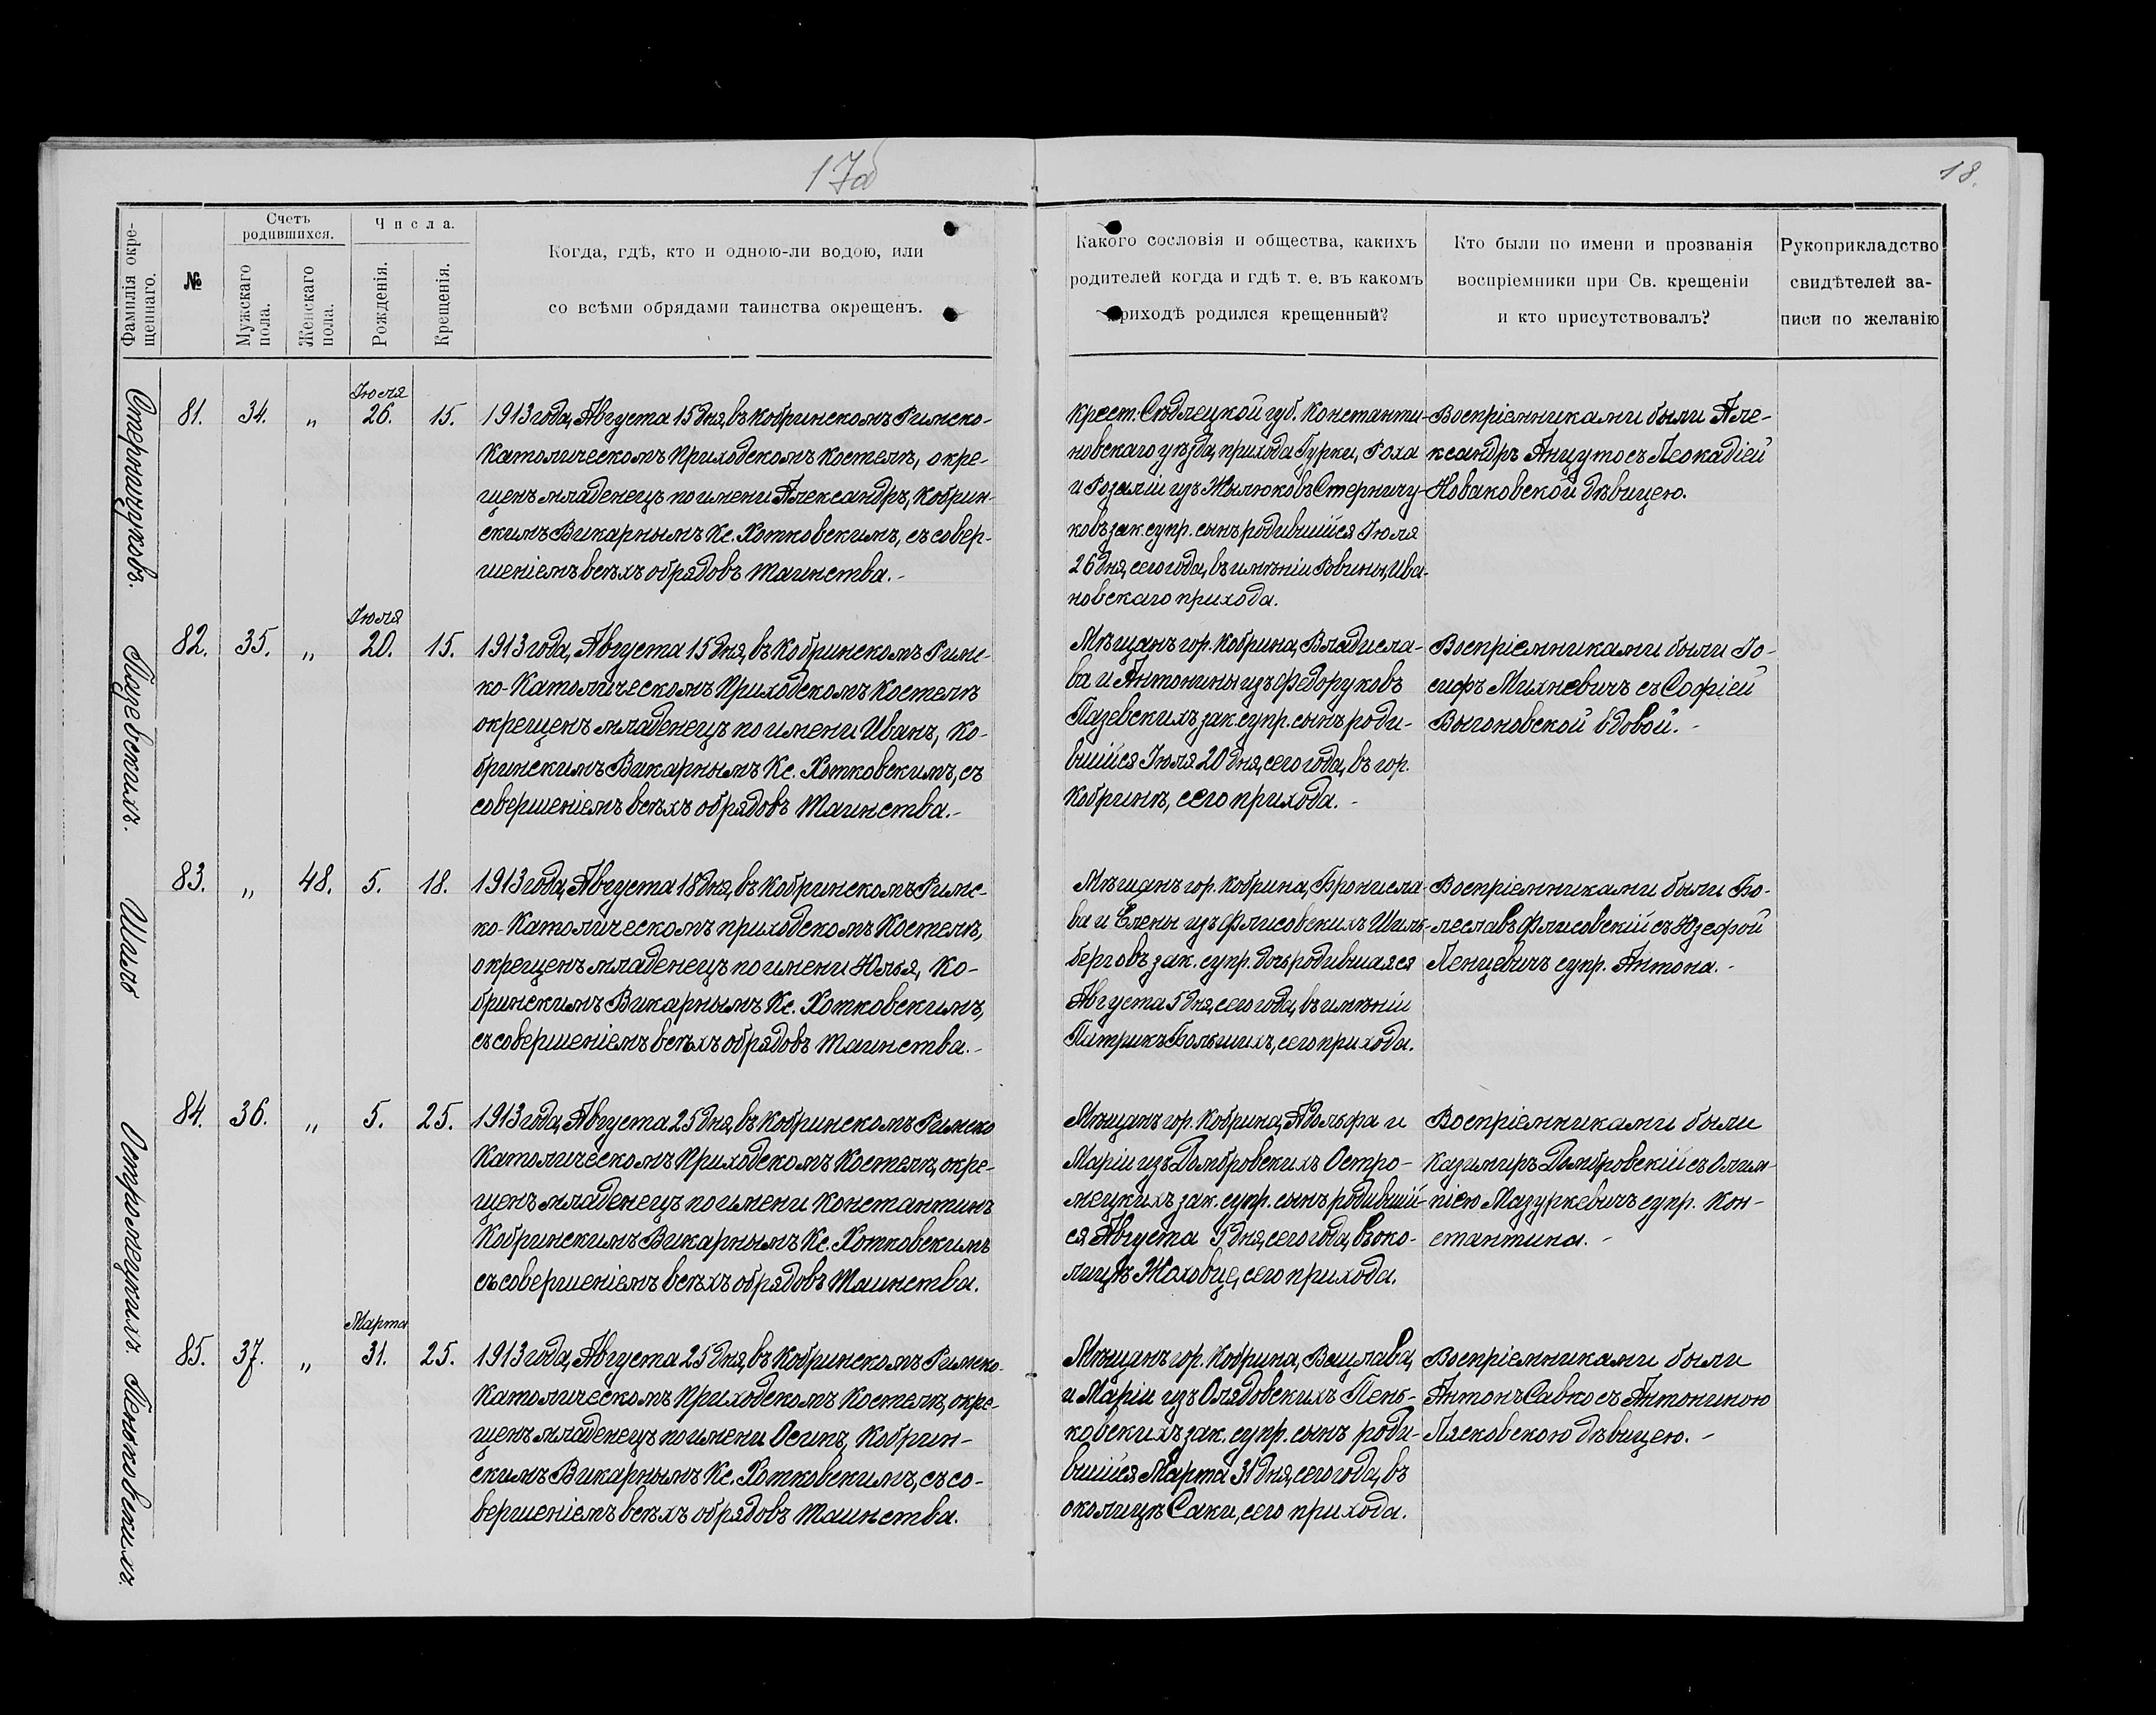 17об
18.
Фамилія окре-
щеннаго.
№
Счетъ
родившихся.
Мужскаго
пола.
Женскаго
пола.
Числа.
Рожденія.
Крещенія.
Когда, гдѣ, кто и одною-ли водою, или
со всѣми обрядами таинства окрещенъ.
Какого сословія и общества, какихъ
родителей когда и гдѣ т. е. въ какомъ
приходѣ родился крещенный?
Кто были по имени и прозванія
воспріемники при Св. крещеніи
и кто присутствовалъ?
Рукоприкладство
свидѣтелей за-
писи по желанію
Стерничуковъ.
81.
34.
„
Іюля
26.
15.
1913 года, Августа 15 дня, въ Кобринскомъ Римско-
Католическомъ Приходскомъ Костелѣ, окре-
щенъ младенецъ по имени Александръ, Кобрин-
скимъ Викарнымъ Кс. Хотковскимъ, съ совер-
шеніемъ всѣхъ обрядовъ Таинства.-
Крест. Сѣдлецкой губ. Константи-
новскаго уѣзда, прихода Гурки, Роха
и Розаліи изъ Жилюковъ Стерничу-
ковъ зак. супр. сынъ родившійся Іюля
26 дня, сего года, въ имѣніи Ровины, Ива-
новскаго прихода.
Воспріемниками были Але-
ксандръ Анцуто съ Леокадіей
Новаковской дѣвицею.
Пазевскихъ.
82.
35.
„
Іюля
20.
15.
1913 года, Августа 15 дня, въ Кобринскомъ Римс-
ко-Католическомъ Приходскомъ Костелѣ
окрещенъ младенецъ по имени Иванъ, Ко-
бринскимъ Викарнымъ Кс. Хотковскимъ, съ
совершеніемъ всѣхъ обрядовъ Таинства.-
Мѣщанъ гор. Кобрина, Владисла-
ва и Антонины изъ Федоруковъ
Пазевскихъ зак. супр. сынъ роди-
вшійся Іюля 20 дня, сего года, въ гор.
Кобринѣ, сего прихода.-
Воспріемниками были Іо-
сифъ Михневичъ съ Софіей
Выгоновской вдовой.-
83.
„
48.
5.
18.
1913 года, Августа 18 дня, въ Кобринскомъ Римс-
ко-Католическомъ приходскомъ Костелѣ,
окрещенъ младенецъ по имени Юлья, Ко-
бринскимъ Викарнымъ Кс. Хотковскимъ,
съ совершеніемъ всѣхъ обрядовъ Таинства.-
Мѣщанъ гор. Кобрина, Бронисла-
ва и Елены изъ Флисовскихъ Шиль-
берговъ зак. супр. дочь родившаяся
Августа 5 дня, сего года, въ имѣніи
Патрикъ Большихъ, сего прихода.
Воспріемниками были Бо-
леславъ Флисовскій съ Юзефой
Ленцевичъ супр. Антона.-
Остромецкихъ.
84.
36.
„
5.
25.
1913 года, Августа 25 дня, въ Кобринскомъ Римско
Католическомъ Приходскомъ Костелѣ, окре-
щенъ младенецъ по имени Константинъ
Кобринскимъ Викарнымъ Кс. Хотковскимъ
съ совершеніемъ всѣхъ обрядовъ Таинства.
Мѣщанъ гор. Кобрина, Адольфа и
Маріи изъ Домбровскихъ Остро-
мецкихъ зак. супр. сынъ родившій-
ся Августа 5 дня, сего года, въ око-
лицѣ Жаховце, сего прихода.
Воспріемниками были
Казимиръ Домбровскій съ Олим-
піею Мазуркевичъ супр. Кон-
стантина.-
Пеньковскихъ.
85.
37.
„
Марта
31.
25.
1913 года, Августа 25 дня, въ Кобринскомъ Римско-
Католическомъ Приходскомъ Костелѣ, окре-
щенъ младенецъ по имени Осипъ, Кобрин-
скимъ Викарнымъ Кс. Хотковскимъ, съ со-
вершеніемъ всѣхъ обрядовъ Таинства.
Мѣщанъ гор. Кобрина, Вацлава,
и Маріи изъ Олядовскихъ Пень-
ковскихъ зак. супр. сынъ роди-
вшійся Марта 31 дня, сего года, въ
околицѣ Саки, сего прихода.
Воспріемниками были
Антонъ Савко съ Антониною
Лясковскою дѣвицею.-